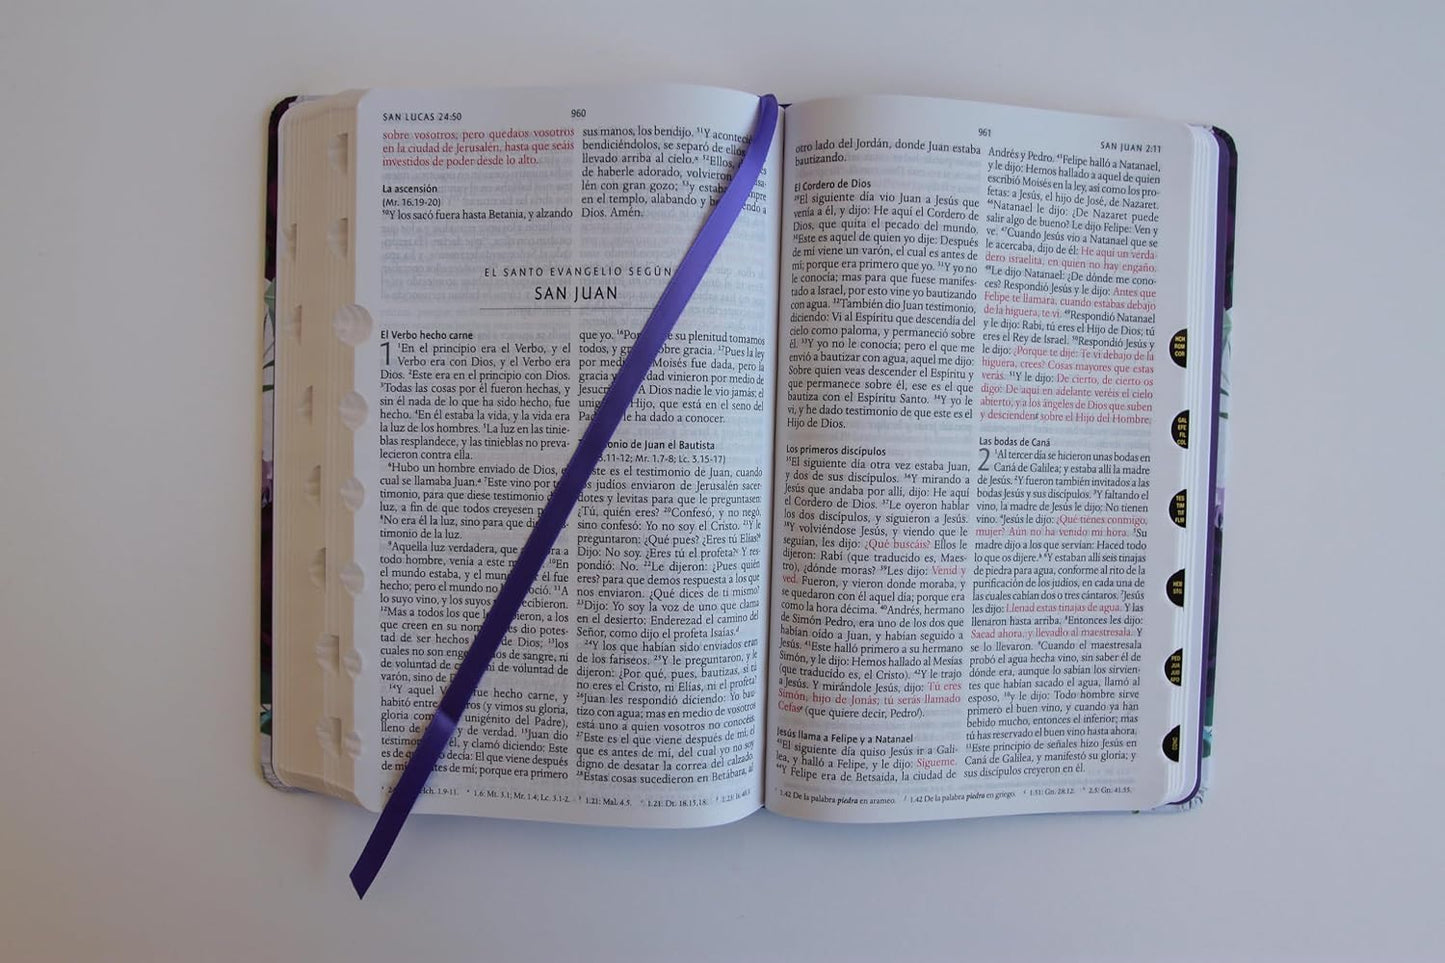 SAN LUCAS 24:50
960
sobre vosotros; pero quedaos vosotros
en la ciudad de Jerusalén, hasta que seáis
investidos de poder desde lo alto.
La ascensión
(Mr. 16.19-20)
50Y los sacó fuera hasta Betania, y alzando
sus manos, los bendijo. 51Y aconteció
bendiciéndolos, se separó de ellos
llevado arriba al cielo. 52Ellos,
de haberle adorado, volvieron
lén con gran gozo; 53y estaban siempre
en el templo, alabando y bendiciendo a
Dios. Amén.
EL SANTO EVANGELIO SEGÚN
SAN JUAN
El Verbo hecho carne
1 1En el principio era el Verbo, y el
Verbo era con Dios, y el Verbo era
Dios. 2Este era en el principio con Dios.
3Todas las cosas por él fueron hechas, y
sin él nada de lo que ha sido hecho, fue
hecho. 4En él estaba la vida, y la vida era
la luz de los hombres. 5La luz en las tinie-
blas resplandece, y las tinieblas no preva-
lecieron contra ella.
6Hubo un hombre enviado de Dios, el
cual se llamaba Juan. 7Este vino por tes-
timonio, para que diese testimonio de
luz, a fin de que todos creyesen por
8No era él la luz, sino para que diese
timonio de la luz.
9Aquella luz verdadera, que a
todo hombre, venía a este 10En
el mundo estaba, y el mundo él fue
hecho; pero el mundo no 11A
lo suyo vino, y los suyos recibieron.
12Mas a todos los que a los
que creen en su nombre, dio potes-
tad de ser hechos de Dios; 13los
cuales no son engendrados de sangre, ni
de voluntad de carne, ni de voluntad de
varón, sino de
14Y aquel fue hecho carne, y
habitó entre (y vimos su gloria,
gloria como unigénito del Padre),
lleno de y de verdad. 15Juan dio
testimonio él, y clamó diciendo: Este
es de decía: El que viene después
de mí, antes de mí; porque era primero
que yo. 16Porque su plenitud tomamos
todos, y gracia sobre gracia. 17Pues la ley
por medio Moisés fue dada, pero la
gracia verdad vinieron por medio de
Jesucristo. A Dios nadie le vio jamás; el
unigénito Hijo, que está en el seno del
Padre, le ha dado a conocer.
Testimonio de Juan el Bautista
3.11-12; Mr. 1.7-8; Lc. 3.15-17)
Este es el testimonio de Juan, cuando
los judíos enviaron de Jerusalén sacer-
dotes y levitas para que le preguntasen:
¿Tú, quién eres? 20Confesó, y no negó,
sino confesó: Yo no soy el Cristo. 21Y le
preguntaron: ¿Qué pues? ¿Eres tú Elías?
Dijo: No soy. ¿Eres tú el profeta? Y res-
pondió: No. 22Le dijeron: ¿Pues quién
eres? para que demos respuesta a los que
nos enviaron. ¿Qué dices de ti mismo?
23Dijo: Yo soy la voz de uno que clama
en el desierto: Enderezad el camino del
Señor, como dijo el profeta Isaías.
24Y los que habían sido enviados eran
de los fariseos. 25Y le preguntaron, y le
dijeron: ¿Por qué, pues, bautizas, si tú
no eres el Cristo, ni Elías, ni el profeta?
26Juan les respondió diciendo: Yo bau-
tizo con agua; mas en medio de vosotros
está uno a quien vosotros no conocéis.
27Este es el que viene después de mí, el
que es antes de mí, del cual yo no soy
digno de desatar la correa del calzado.
28Estas cosas sucedieron en Betábara, al
1.6: Mt. 3.1; Mr. 1.4; Lc. 3.1-2. 1.21: Mal. 4.5. 1.21: Dt. 18.15,18.
961
SAN JUAN 2:11
otro lado del Jordán, donde Juan estaba
bautizando.
El Cordero de Dios
29El siguiente día vio Juan a Jesús que
venía a él, y dijo: He aquí el Cordero de
Dios, que quita el pecado del mundo.
30Este es aquel de quien yo dije: Después
de mí viene un varón, el cual es antes de
mí; porque era primero que yo. 31Y yo no
le conocía; mas para que fuese manifes-
tado a Israel, por esto vine yo bautizando
con agua. 32También dio Juan testimonio,
diciendo: Vi al Espíritu que descendía del
cielo como paloma, y permaneció sobre
él. 33Y yo no le conocía; pero el que me
envió a bautizar con agua, aquel me dijo:
Sobre quien veas descender el Espíritu y
que permanece sobre él, ese es el que
bautiza con el Espíritu Santo. 34Y yo le
vi, y he dado testimonio de que este es el
Hijo de Dios.
Los primeros discípulos
35El siguiente día otra vez estaba Juan,
y dos de sus discípulos. 36Y mirando a
Jesús que andaba por allí, dijo: He aquí
el Cordero de Dios. 37Le oyeron hablar
los dos discípulos, y siguieron a Jesús.
38Y volviéndose Jesús, y viendo que le
seguían, les dijo: ¿Qué buscáis? Ellos le
dijeron: Rabí (que traducido es, Maes-
tro), ¿dónde moras? 39Les dijo: Venid y
ved. Fueron, y vieron donde moraba, y
se quedaron con él aquel día; porque era
como la hora décima. 40Andrés, hermano
de Simón Pedro, era uno de los dos que
habían oído a Juan, y habían seguido a
Jesús. 41Este halló primero a su hermano
Simón, y le dijo: Hemos hallado al Mesías
(que traducido es, el Cristo). 42Y le trajo
a Jesús. Y mirándole Jesús, dijo: Tú eres
Simón, hijo de Jonás; tú serás llamado
Cefas (que quiere decir, Pedro).
Jesús llama a Felipe y a Natanael
43El siguiente día quiso Jesús ir a Gali-
lea, y halló a Felipe, y le dijo: Sígueme.
44Y Felipe era de Betsaida, la ciudad de
Andrés y Pedro. 45Felipe halló a Natanael,
y le dijo: Hemos hallado a aquel de quien
escribió Moisés en la ley, así como los pro-
fetas: a Jesús, el hijo de José, de Nazaret.
46Natanael le dijo: ¿De Nazaret puede
salir algo de bueno? Le dijo Felipe: Ven y
ve. 47Cuando Jesús vio a Natanael que se
le acercaba, dijo de él: He aquí un verda-
dero israelita, en quien no hay engaño.
48Le dijo Natanael: ¿De dónde me cono-
ces? Respondió Jesús y le dijo: Antes que
Felipe te llamara, cuando estabas debajo
de la higuera, te vi. 49Respondió Natanael
y le dijo: Rabí, tú eres el Hijo de Dios; tú
eres el Rey de Israel. 50Respondió Jesús y
le dijo: ¿Porque te dije: Te vi debajo de la
higuera, crees? Cosas mayores que estas
verás. 51Y le dijo: De cierto, de cierto os
digo: De aquí en adelante veréis el cielo
abierto, y a los ángeles de Dios que suben
y descienden sobre el Hijo del Hombre.
Las bodas de Caná
2 1Al tercer día se hicieron unas bodas en
Caná de Galilea; y estaba allí la madre
de Jesús. 2Y fueron también invitados a las
bodas Jesús y sus discípulos. 3Y faltando el
vino, la madre de Jesús le dijo: No tienen
vino. 4Jesús le dijo: ¿Qué tienes conmigo,
mujer? Aún no ha venido mi hora. 5Su
madre dijo a los que servían: Haced todo
lo que os dijere. 6Y estaban allí seis tinajas
de piedra para agua, conforme al rito de la
purificación de los judíos, en cada una de
las cuales cabían dos o tres cántaros. 7Jesús
les dijo: Llenad estas tinajas de agua. Y las
llenaron hasta arriba. 8Entonces les dijo:
Sacad ahora, y llevadlo al maestresala. Y
se lo llevaron. 9Cuando el maestresala
probó el agua hecha vino, sin saber él de
dónde era, aunque lo sabían los sirvien-
tes que habían sacado el agua, llamó al
esposo, 10y le dijo: Todo hombre sirve
primero el buen vino, y cuando ya han
bebido mucho, entonces el inferior; mas
tú has reservado el buen vino hasta ahora.
11Este principio de señales hizo Jesús en
Caná de Galilea, y manifestó su gloria; y
sus discípulos creyeron en él.
1.42 De la palabra piedra en arameo. 1.42 De la palabra piedra en griego. 1.51: Gn. 28.12. 2.5: Gn. 41.55.
HCH
ROM
COR
GAL
EFE
FIL
COL
TES
TIM
TIT
FLM
HEB
STG
PED
JUA
JUD
APO